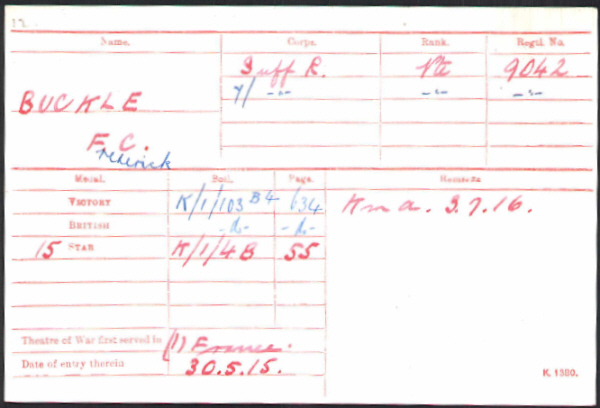 12
Name. Corps. Rank. Regtl. No.
Suff R. Pte 9042
7/ -"- -"- -"-
BUCKLE
F. C.
rederick
Medal. Roll. Page. Remarks
VICTORY K/1/103 B4 634 K in a. 3.7.16.
BRITISH -do- -do-
15 STAR K/1/4B 55
Theatre of War first served in (1) France.
Date of entry therein 30.5.15.
K. 1380.